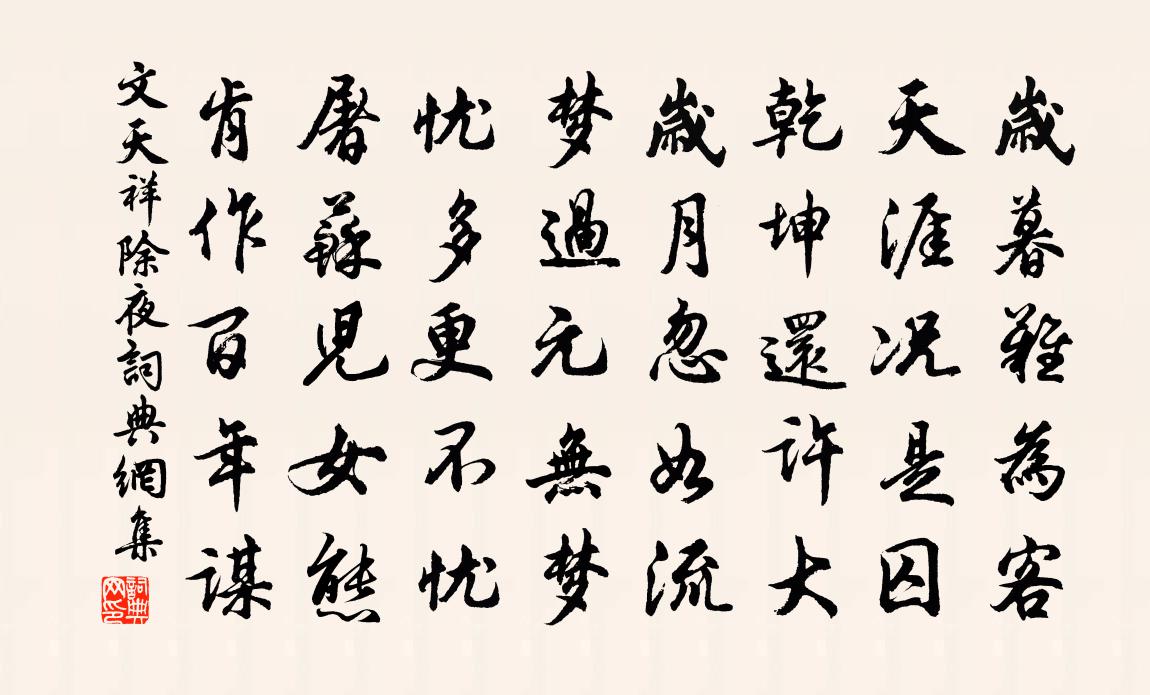 歲暮難為客
天涯况是囚
乾坤還許大
歲月忽如流
梦過元無梦
忧多更不忧
屠蘇児女熊
肯作百年謀
文天祥除夜詞典網集
詞典网印